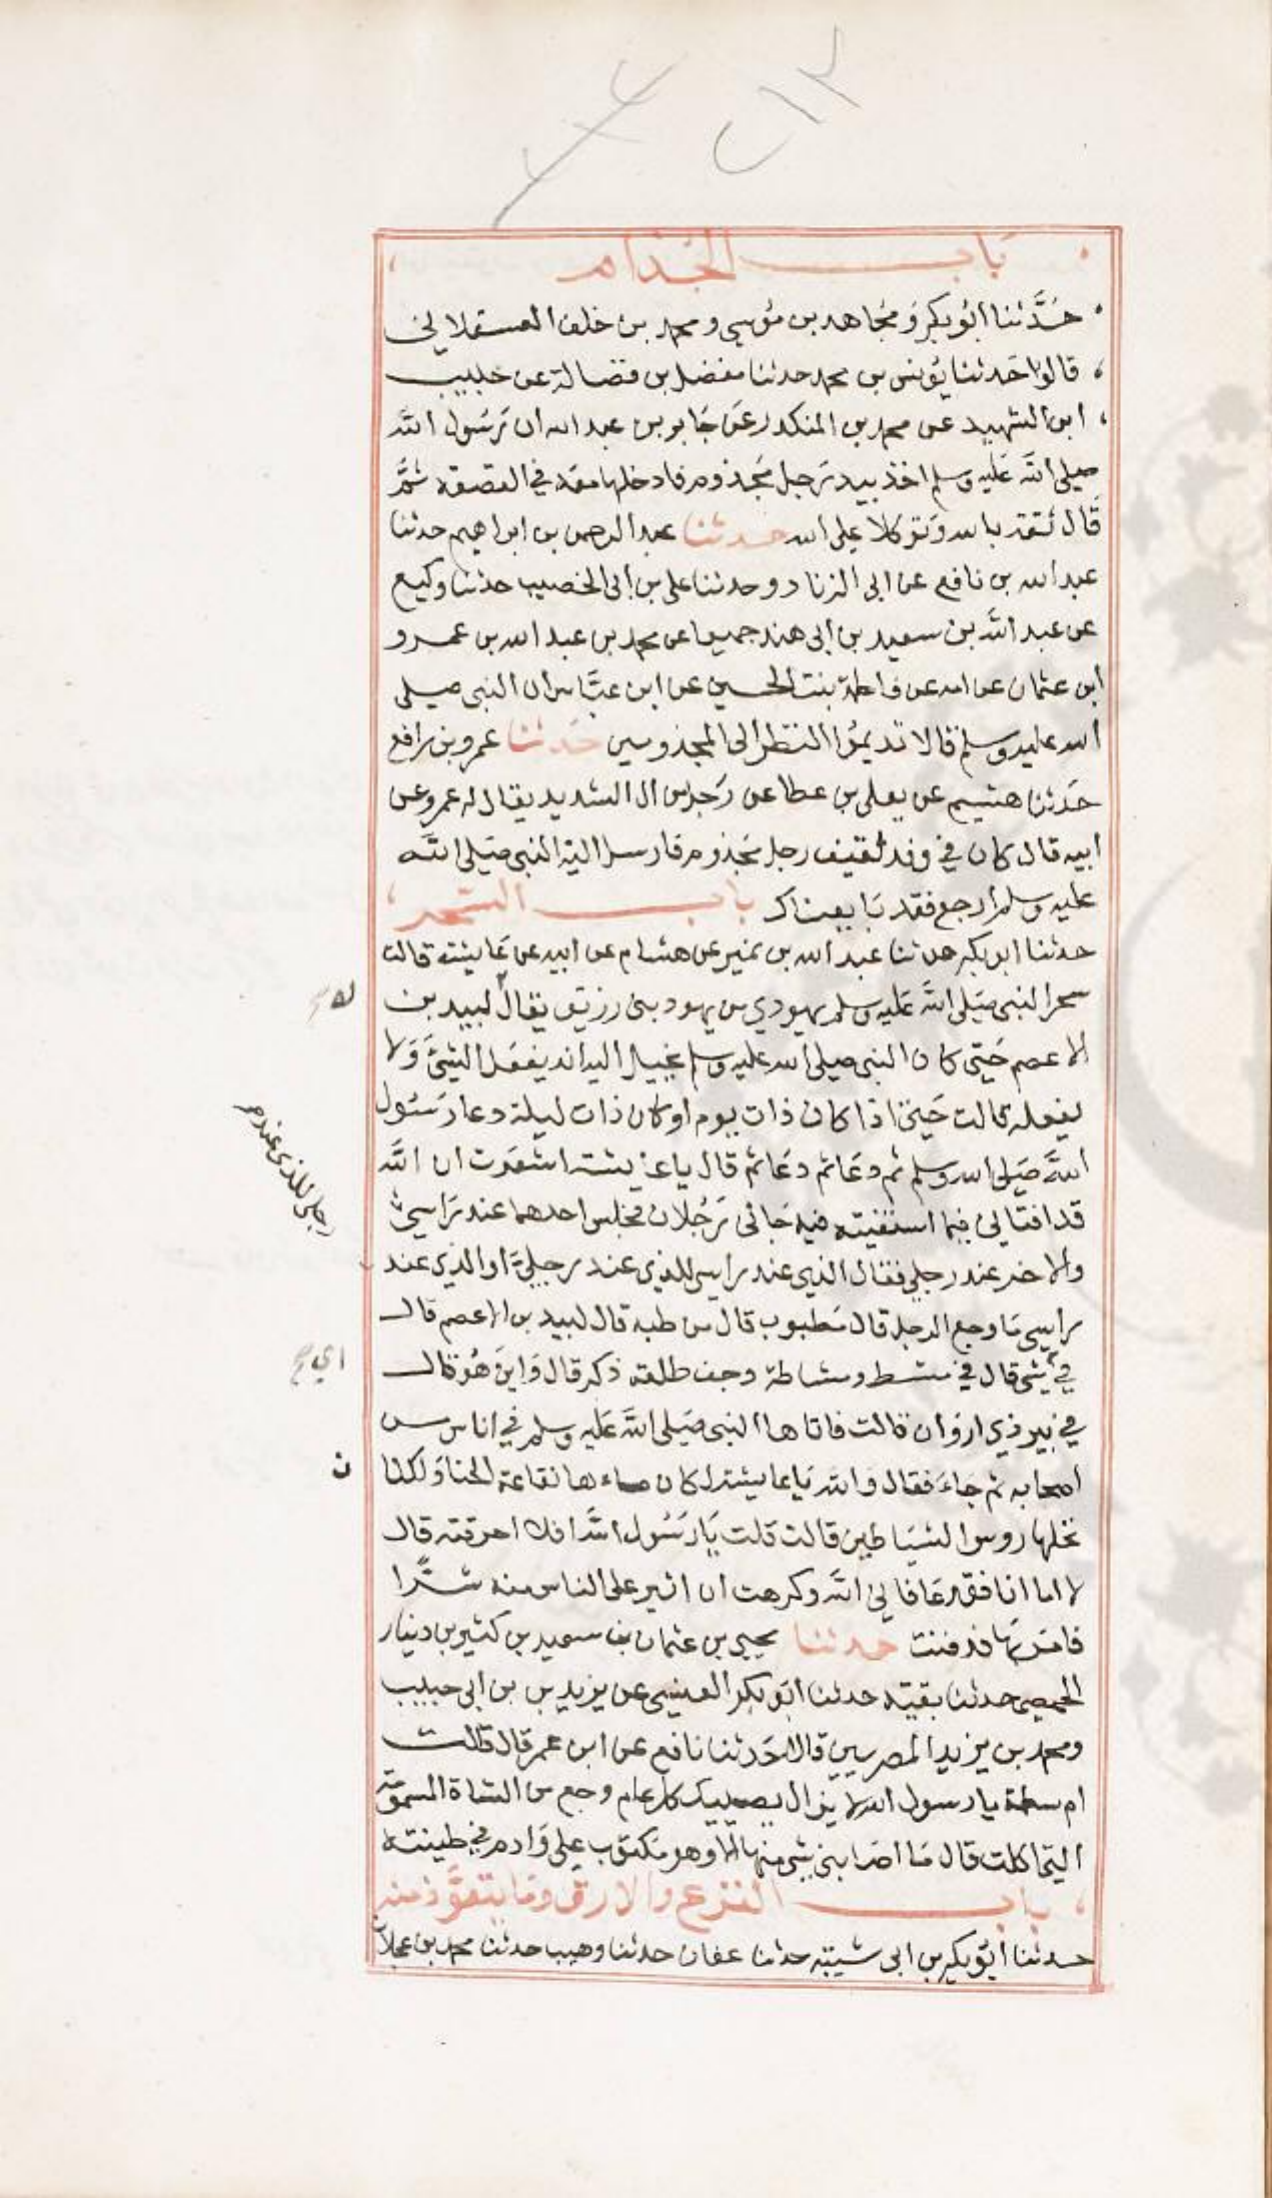 ٢١٢
باب الجذام
حدثنا أبو بكر ومجاهد بن موسي ومحمد بن خلف العسقلاني
قالوا حدثنا يونس بن محمد حدثنا مفضل بن فضالة عن حبيب
ابن الشهيد عن محمد بن المنكدر عن جابر بن عبد الله ان رسول الله
صلى الله عليه وسلم اخذ بيد رجل مجذوم فادخلها معه في القصعة ثم
قال ثقة بالله وتوكلا على الله حدثنا عبد الرحمن بن ابراهيم حدثنا
عبد الله بن نافع عن ابى الزناد وحدثنا على بن أبى الخصيب حدثنا وكيع
عن عبد الله بن سعيد بن ابى هند جميعا عن محمد بن عبد الله بن عمرو
ابن عثمان عن امه عن فاطمة بنت الحسين عن ابن عباس ان النبى صلى
الله عليه وسلم قال لا تديموا النظر الى المجذومين حدثنا عمرو بن رافع
حدثنا هشيم عن يعلى بن عطا عن رجل من ال الشديد يقال له عمرو عن
ابيه قال كان في وفد ثقيف رجل مجذوم فارسل اليه النبى صلى الله
عليه وسلم ارجع فقد بايعناك باب السحر
حدثنا ابو بكر حدثنا عبد الله بن نمير عن هشام عن ابيه عن عايشة قالت
سحر النبى صلى الله عليه وسلم يهودي من يهود بنى رزيق يقال لبيد بن
له صح
الاعصم حتى كان النبى صلى الله عليه وسلم يخيل اليه انه يفعل الشئ ولا
يفعله قالت حتى اذا كان ذات يوم او كان ذات ليلة دعا رسول
الله صلى الله وسلم ثم دعا ثم دعا ثم قال يا عايشة اشعرت ان الله
قد افتاني فيما استفتيته فيه جانى رجلان فجلس احدهما عند راسي
والاخر عند رجلي فقال الذي عند راسي للذي عند رجلي او الذي عند
رجلي للذي عند
راسي ما وجع الرجل قال مطبوب قال من طبه قال لبيد بن الاعصم قال
في شئ قال في مشط ومشاطة وجف طلعة ذكر قال واين هو قال
اي صح
في بير ذي اروان قالت فاتاها النبى صلى الله عليه وسلم في اناس من
اصحابه ثم جاء فقال والله يا عايشة لكان ماءها نقاعة الحنا ولكنا
ن
نخلها روس الشياطين قالت قلت يا رسول الله افلا احرقته قال
لا اما انا فقد عافاني الله وكرهت ان اثير على الناس منه شرا
فامر بها فدفنت حدثنا يحيي بن عثمان بن سعيد بن كثير بن دينار
الحمصى حدثنا بقية حدثنا ابو بكر العنسي عن يزيد بن ابى حبيب
ومحمد بن يزيد المصريين قالا حدثنا نافع عن ابن عمر قال قالت
ام سلمة يا رسول الله لا يزال يصيبك كل عام وجع من الشاة المسمومة
التى اكلت قال ما اصابنى شئ منها الا وهو مكتوب علي وادم في طينته
باب الفزع والارق وما يتعوذ منه
حدثنا أبو بكر بن ابى شيبة حدثنا عفان حدثنا وهيب حدثنا محمد بن عجلان